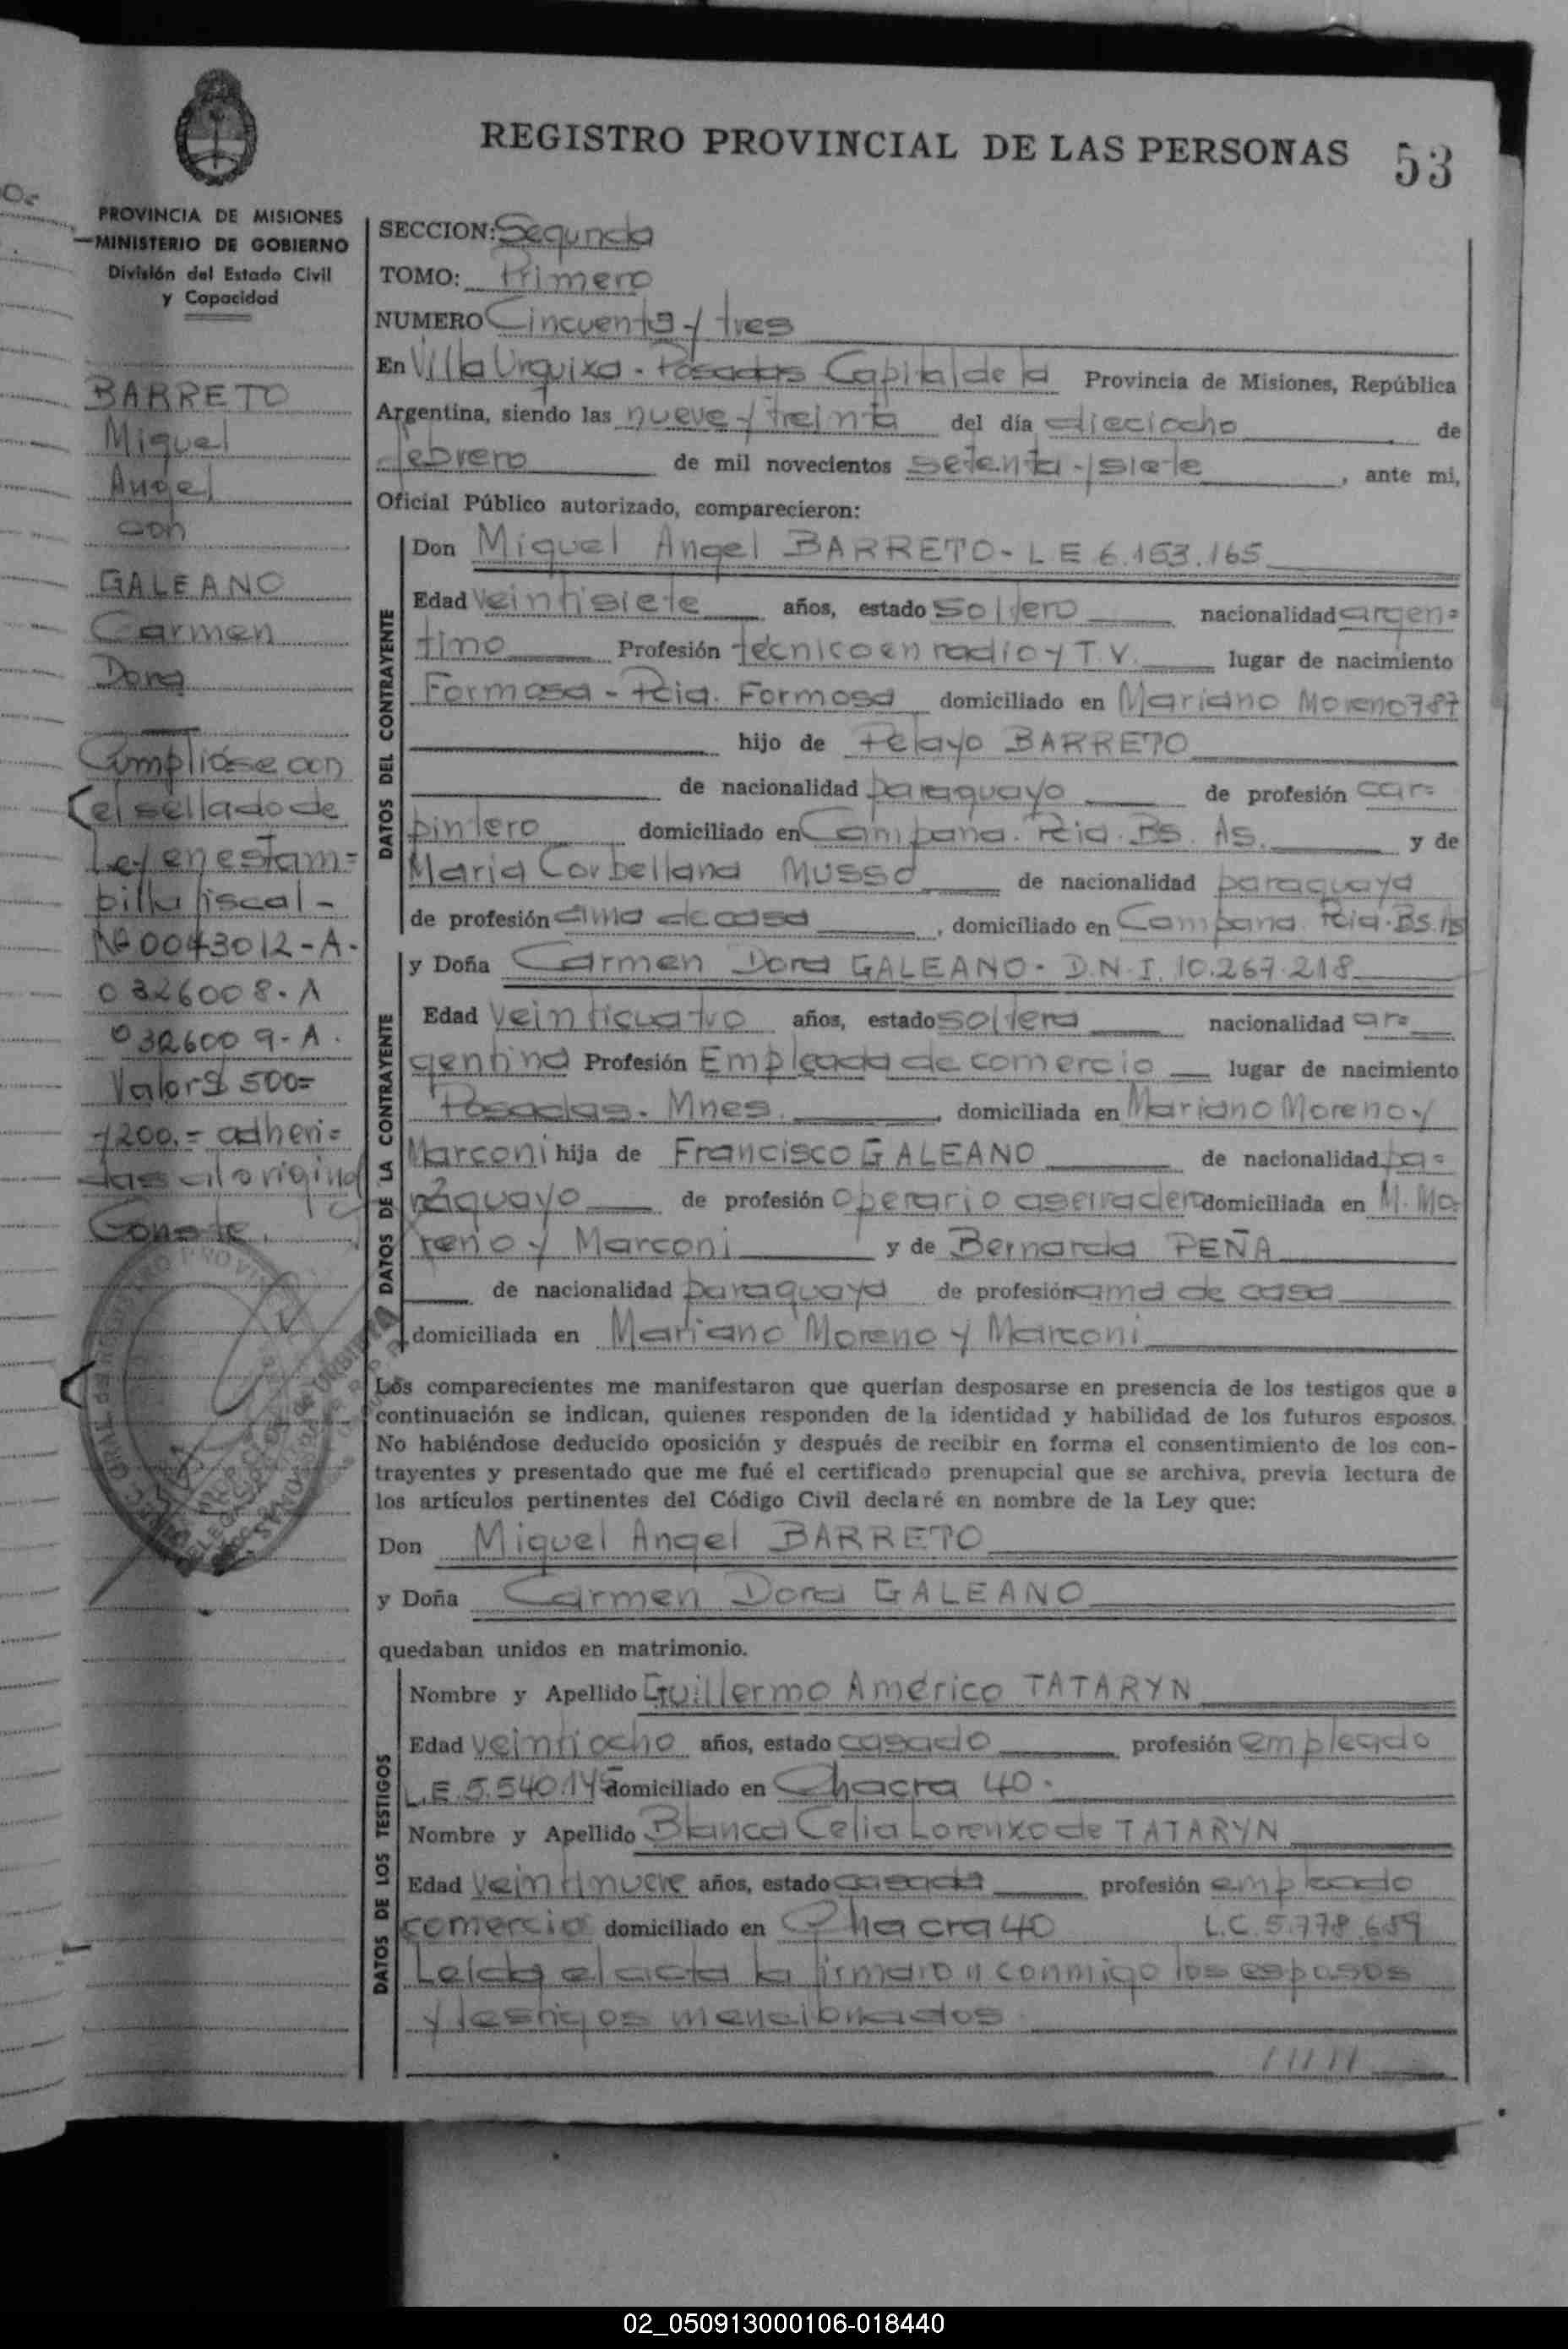 REGISTRO PROVINCIAL DE LAS PERSONAS 53
PROVINCIA DE MISIONES
MINISTERIO DE GOBIERNO
División del Estado Civil
y Capacidad
BARRETO
Miguel
Angel
con
GALEANO
Carmen
Dora
Cumpliose con
el sellado de
Ley en estam=
pilla fiscal -
Nº 0043012-A-
0326008-A
0326009-A.
Valor $ 500=
y 200.= adheri=
das al original
Conste.
SECCION: Segunda
TOMO: Primero
NUMERO Cincuenta y tres
En Villa Urquiza - Posadas Capital de la Provincia de Misiones, República
Argentina, siendo las nueve y treinta del día dieciocho de
febrero de mil novecientos setenta y siete, ante mi,
Oficial Público autorizado, comparecieron:
DATOS DEL CONTRAYENTE
Don Miguel Angel BARRETO - L E 6.153.165
Edad veintisiete años, estado soltero nacionalidad argen=
tino Profesión técnico en radio y T.V. lugar de nacimiento
Formosa - Pcia. Formosa domiciliado en Mariano Moreno 787
hijo de Pelayo BARRETO
de nacionalidad paraguayo de profesión car=
pintero domiciliado en Campana. Pcia. Bs. As. y de
Maria Corbellana MUSSO de nacionalidad paraguaya
de profesión ama de casa, domiciliado en Campana Pcia. Bs. As
DATOS DE LA CONTRAYENTE
y Doña Carmen Dora GALEANO - D.N.I. 10.267.218
Edad veinticuatro años, estado soltera nacionalidad ar=
gentina Profesión Empleada de comercio lugar de nacimiento
Posadas. Mnes. domiciliada en Mariano Moreno y
Marconi hija de Francisco GALEANO de nacionalidad pa=
raguayo de profesión Operario aserradero domiciliada en M. Mo=
reno y Marconi y de Bernarda PEÑA
de nacionalidad paraguaya de profesión ama de casa
domiciliada en Mariano Moreno y Marconi
Los comparecientes me manifestaron que querían desposarse en presencia de los testigos que a
continuación se indican, quienes responden de la identidad y habilidad de los futuros esposos.
No habiéndose deducido oposición y después de recibir en forma el consentimiento de los con-
trayentes y presentado que me fué el certificado prenupcial que se archiva, previa lectura de
los artículos pertinentes del Código Civil declaré en nombre de la Ley que:
Don Miguel Angel BARRETO
y Doña Carmen Dora GALEANO
quedaban unidos en matrimonio.
DATOS DE LOS TESTIGOS
Nombre y Apellido Guillermo Américo TATARYN
Edad veintiocho años, estado casado profesión empleado
L.E. 5.540.145 domiciliado en Chacra 40.
Nombre y Apellido Blanca Celia Lorenzo de TATARYN
Edad veintinueve años, estado casada profesión empleado
comercio domiciliado en Chacra 40 L.C. 5.778.689
Leída el acta la firmaron conmigo los esposos
y testigos mencionados
/////
02_050913000106-018440